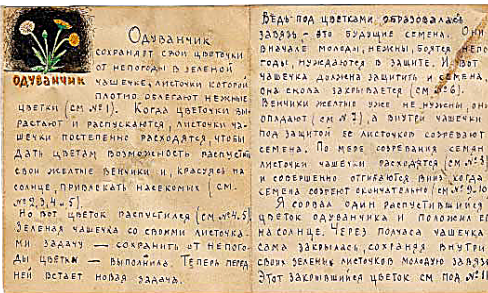 ОДУВАНЧИК
Одуванчик
сохраняет свои цветочки
от непогоды в зеленой
чашечке, листочки которой
плотно облегают нежные
цветки (см. №1). Когда цветочки вы-
растают и распускаются, листочки ча-
шечки постепенно расходятся, чтобы
дать цветам возможность распустить
свои желтые венчики и, красуясь на
солнце, привлекать насекомых (см.
№2,3,4-5).
Но вот цветок распустился (см. №4-5).
Зеленая чашечка со своими листочка-
ми задачу — сохранить от непого-
ды цветки — выполнила. Теперь перед
ней встает новая задача.
Ведь под цветками образовалась
завязь - это будущие семена. Они
вначале молоды, нежны, боятся непо-
годы, нуждаются в защите. И вот
чашечка должна защитить и семена,
она снова закрывается (см. №6).
Венчики желтые уже не нужны, они
опадают (см №7), а внутри чашечки
под защитой ее листочков созревают
семена. По мере созревания семян
листочки чашечки расходятся (см. №8)
и совершенно отгибаются вниз, когда
семена созреют окончательно (см №9-10)
Я сорвал один распустившийся
цветок одуванчика и положил его
на солнце. Через полчаса чашечка
сама закрылась, сохраняя внутри
своих зеленых листочков молодую завязь.
Этот закрывшийся цветок см под №11